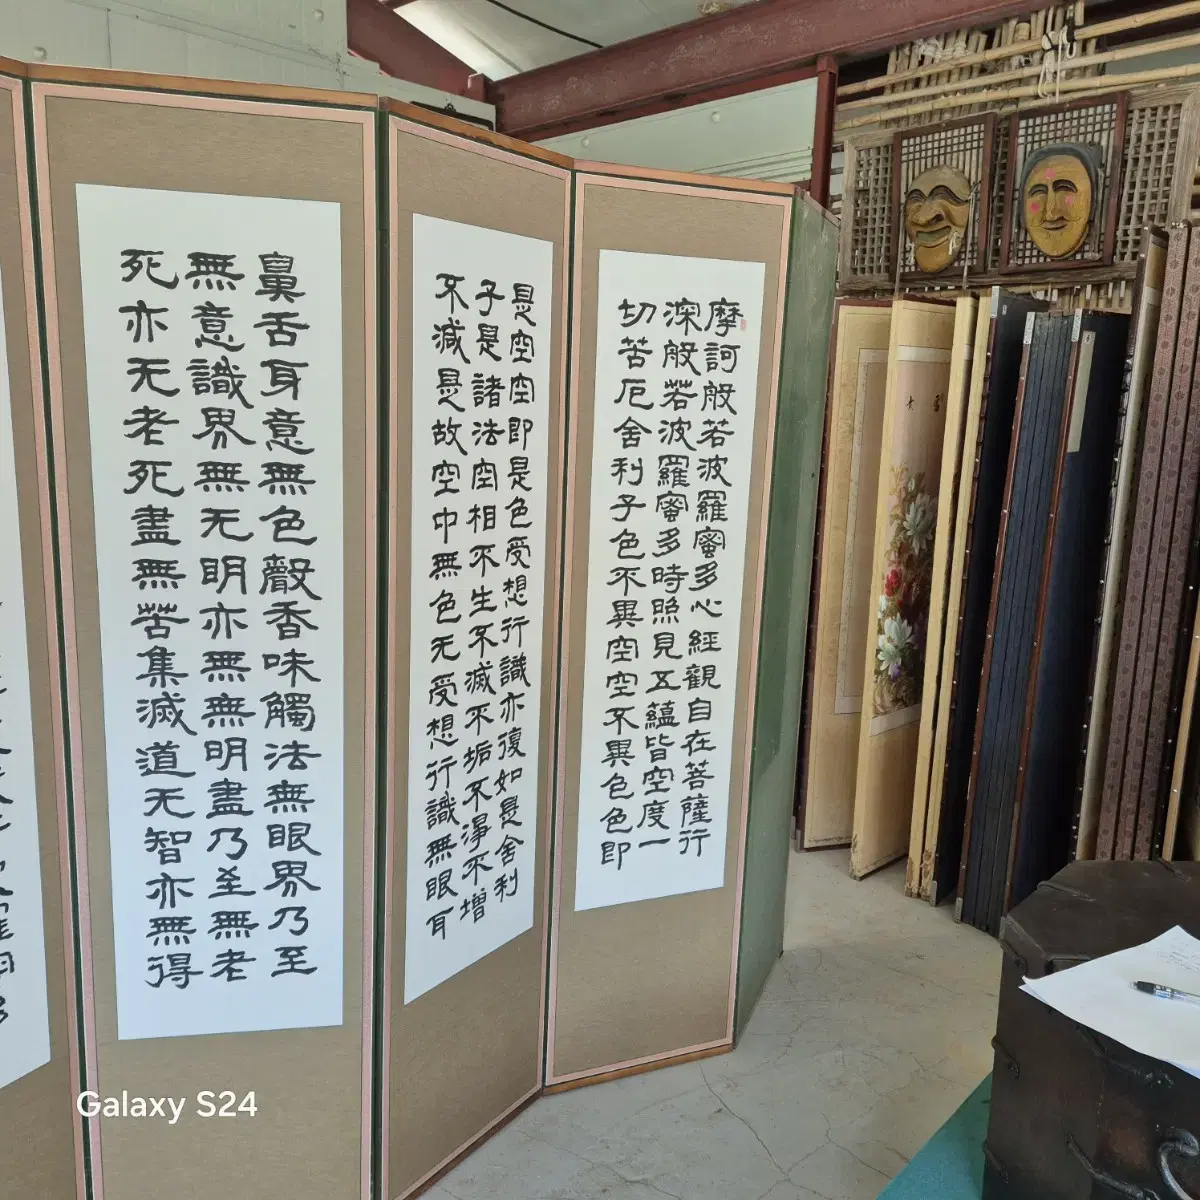 摩訶般若波羅蜜多心經觀自在菩薩行
深般若波羅蜜多時照見五蘊皆空度一
切苦厄舍利子色不異空空不異色色即
是空空即是色受想行識亦復如是舍利
子是諸法空相不生不滅不垢不淨不增
不減是故空中無色无受想行識無眼耳
鼻舌身意無色聲香味觸法無眼界乃至
無意識界無无明亦無無明盡乃至無老
死亦无老死盡無苦集滅道无智亦無得
Galaxy S24